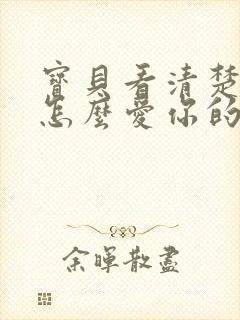 寶貝看清楚
怎麼愛你的
余暉散盡